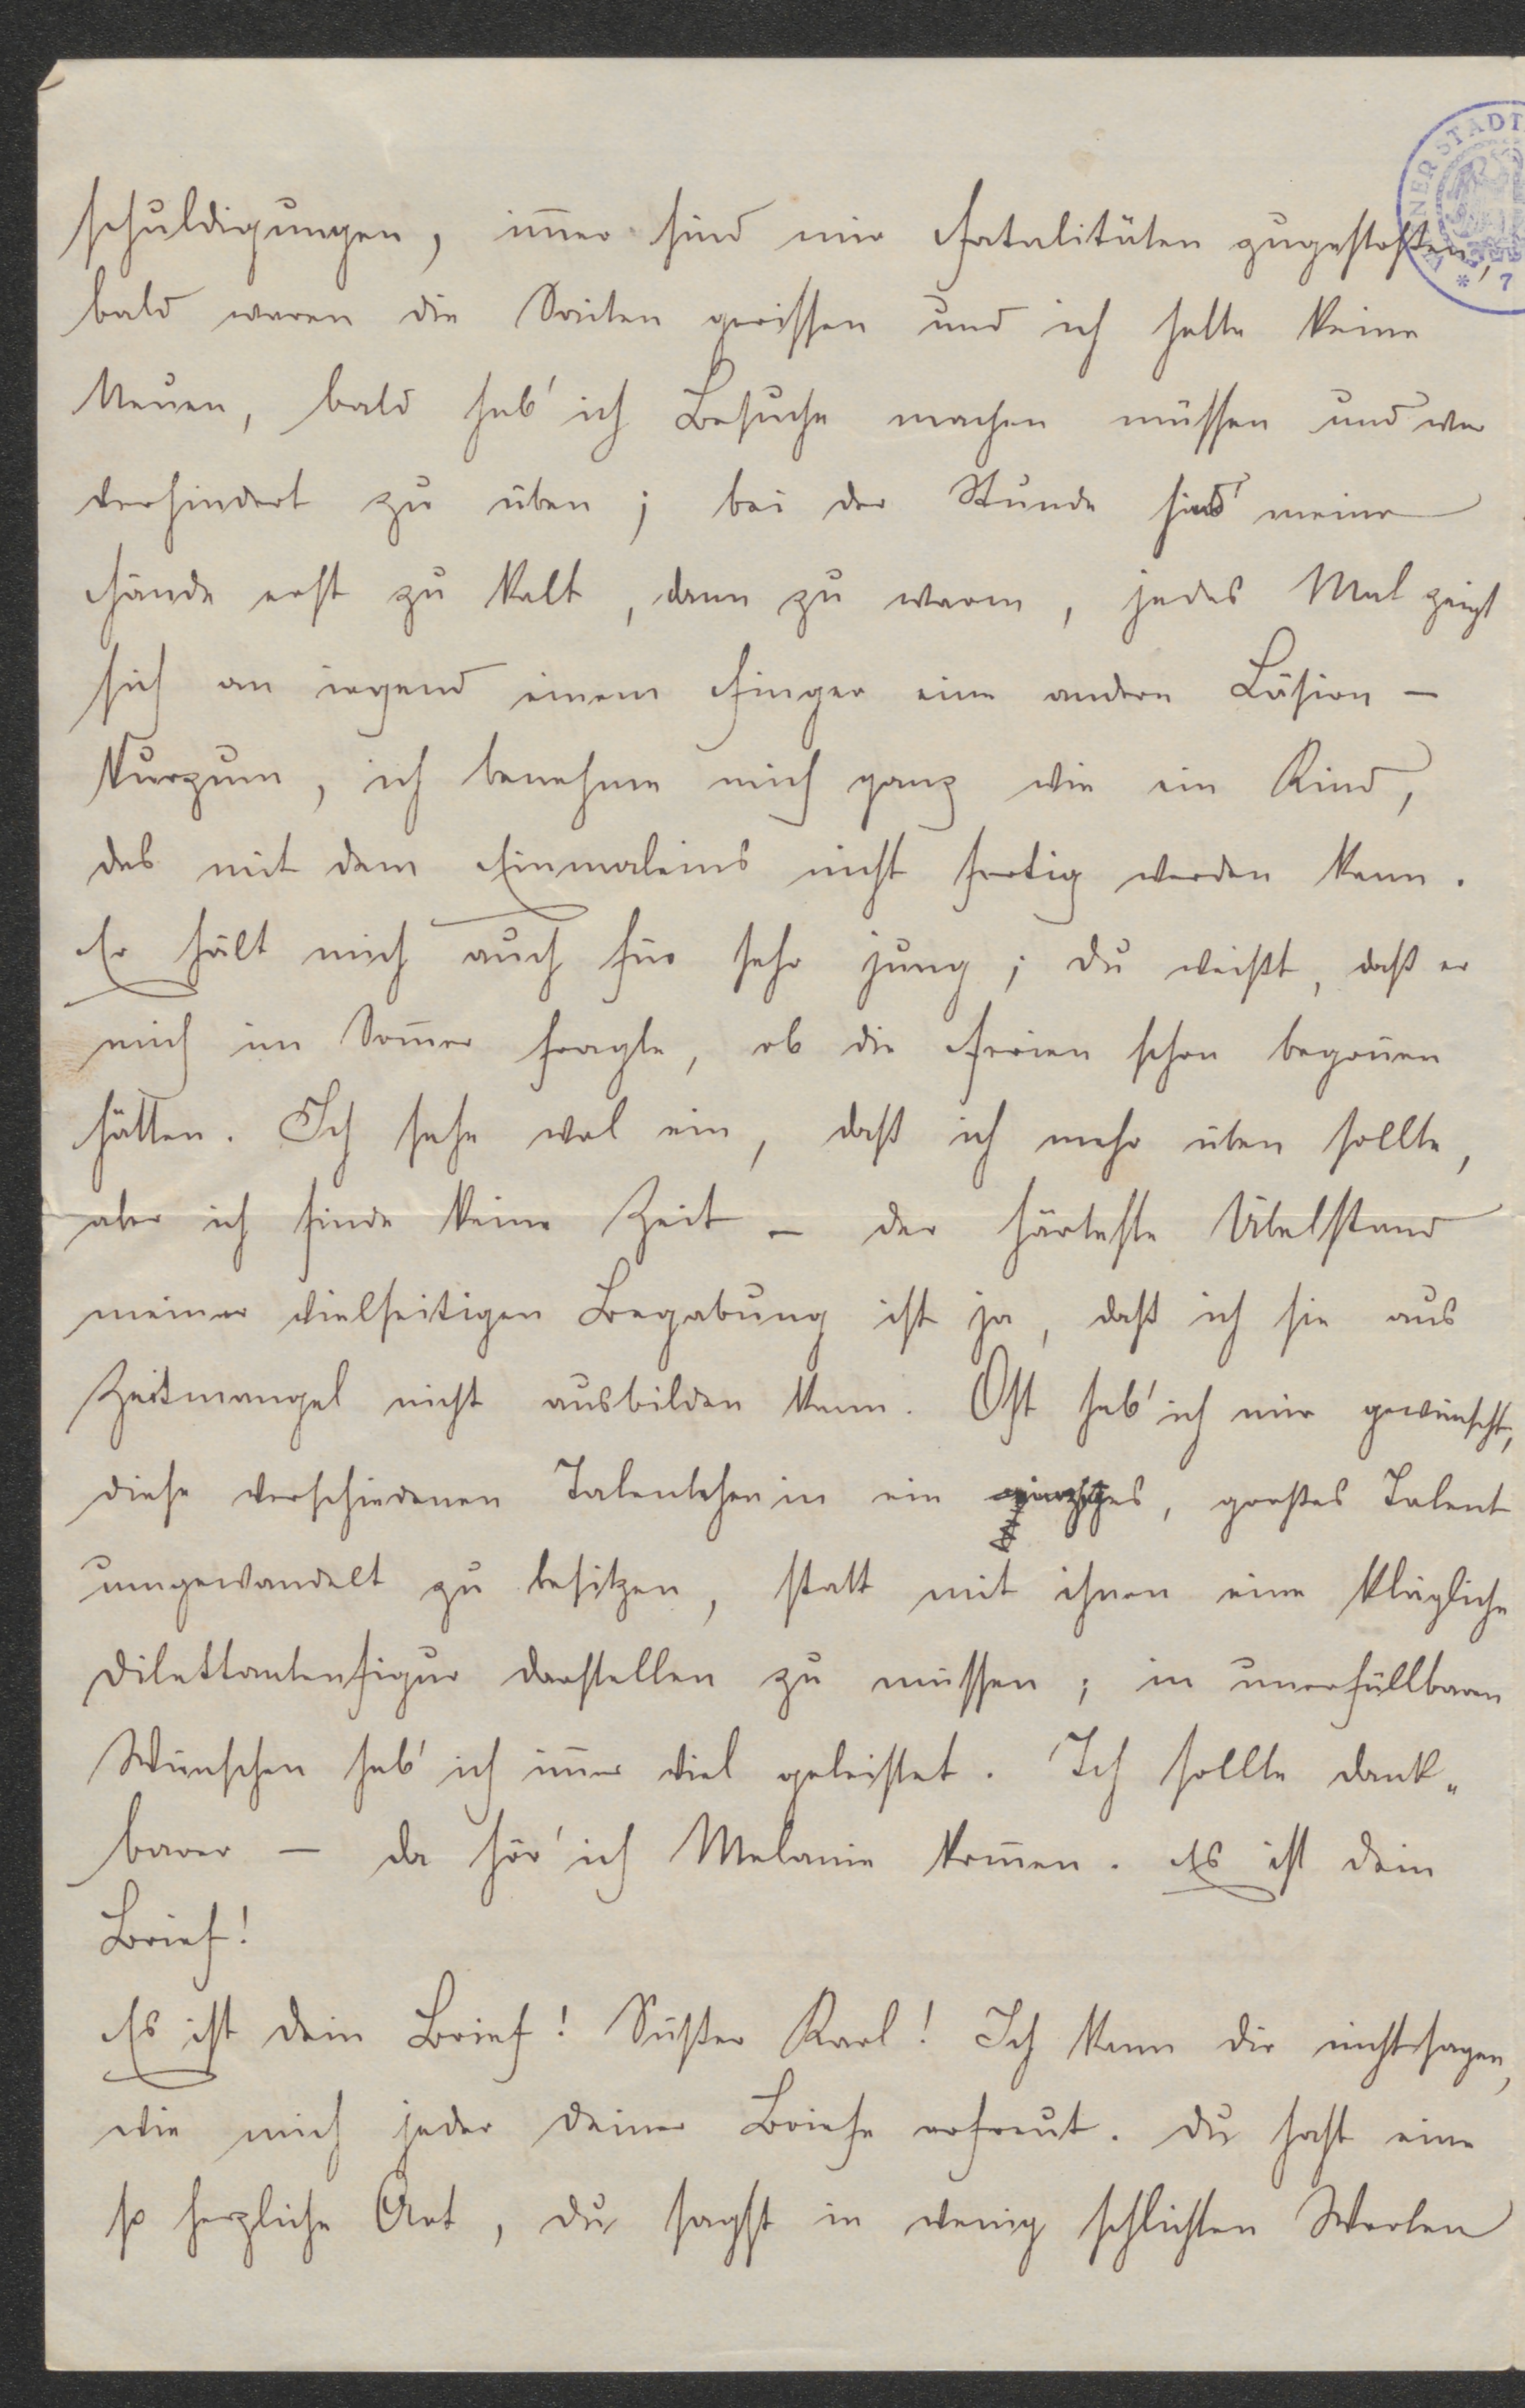 schuldigungen, im̄er sind mir Fatalitäten zugestoßen,
bald waren die Saiten gerissen und ich hatte keine
Neuen, bald hab' ich Besuche machen müssen und war
verhindert zu üben; bei der Stunde sind meine
Hände erst zu kalt, dann zu warm, jedes Mal zeigt
sich an irgend einem Finger eine andere Läsion –
kurzum, ich benehme mich ganz wie ein Kind,
das mit dem Einmaleins nicht fertig werden kann.
Er hält mich auch für sehr jung; du weißt, daß er
mich im Som̄er fragte, ob die Ferien schon begon̄en
hätten. Ich sehe wol ein, daß ich mehr üben sollte,
aber ich finde keine Zeit – der härteste Übelstand
meiner vielseitigen Begabung ist ja, daß ich sie aus
Zeitmangel nicht ausbilden kann. Oft hab' ich mir gewünscht,
diese verschiedenen Talentchen in ein einziges, großes Talent
umgewandelt zu besitzen, statt mit ihnen eine klägliche
Dilettantenfigur darstellen zu müssen; in unerfüllbaren
Wünschen hab' ich im̄er viel geleistet. Ich sollte dank„
barer – da hör' ich Melanie kom̄en. Es ist dein
Brief!
Es ist dein Brief! Süßer Karl! Ich kann dir nicht sagen,
wie mich jeder deiner Briefe erfreut. Du hast eine
so herzliche Art, du sagst in wenig schlichten Worten
WIENER STADT
* 7